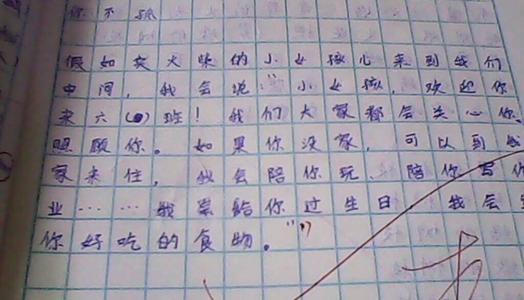 你不孤
假如卖火柴的小女孩儿来到我们
中间，我会说：“小女孩，欢迎你
来六（ ）班！我们大家都会关心你、
照顾你。如果你没家，可以到我
家来住，我会陪你玩、陪你写作
业……我要给你过生日，我会
你好吃的食物。”